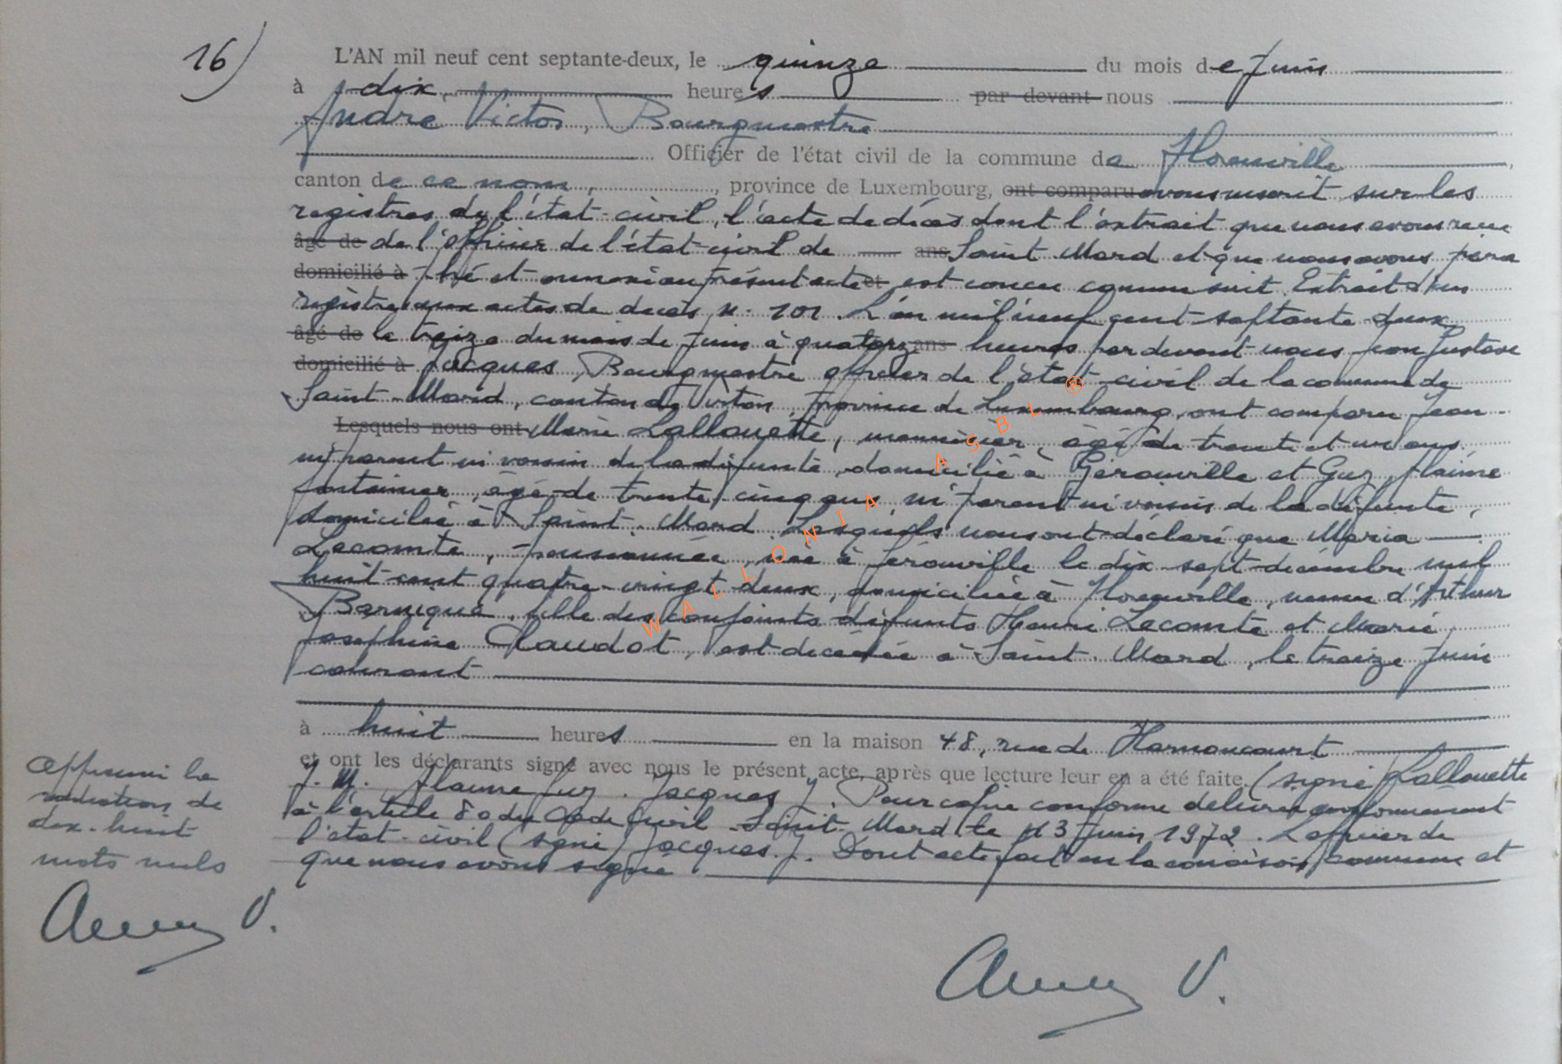 16)
L'AN mil neuf cent septante-deux, le quinze du mois de Juin
à dix heures par devant nous
André Victor, Bourgmestre
Officier de l'état civil de la commune de Florenville
canton de ce nom, province de Luxembourg, ont comparu avons inscrit sur les
registres de l'état-civil, l'acte de décès dont l'extrait que nous avons reçu
âgé de de l'officier de l'état-civil de ans Saint Mard et que nous avons para
domicilié à phé et annexé au présent acte et est conçu comme suit. Extrait d'un
registre aux actes de décès n° 101. L'an mil neuf cent septante deux
âgé de le treize du mois de Juin à quatorze ans heures par devant nous Jean Gustave
domicilié à Jacques, Bourgmestre officier de l'état-civil de la commune de
Saint-Mard, canton de Virton, province de Luxembourg, ont comparu Jean
Lesquels nous ont Marie Lallouette, menuisier, âgé de trente et un ans
ni parent ni voisin de la défunte, domicilié à Gérouville et Guy Flaime
fontainier, âgé de trente cinq ans ni parent ni voisin de la défunte,
domicilié à Saint-Mard. Lesquels nous ont déclaré que Maria
Lecomte, pensionnée, née à Gérouville le dix sept décembre mil
huit cent quatre-vingt deux, domiciliée à Florenville, veuve d'Arthur
Bernique, fille des conjoints défunts Henri Lecomte et Marie
Joséphine Claudot, est décédée à Saint-Mard, le treize Juin
courant
à huit heures en la maison 48, rue de Harnoncourt
et ont les déclarants signé avec nous le présent acte, après que lecture leur en a été faite (signé) Lallouette
J. M. Flaime Guy. Jacques J. Pour copie conforme délivrée conformément
à l'article 80 du Code Civil Saint-Mard le 13 Juin 1972. L'officier de
l'état-civil (signé) Jacques J. Dont acte fait en la maison commune et
que nous avons signé.
Approuvé la
radiation de
dix-huit
mots nuls
V.
V.
WALLONIA ASBL ©